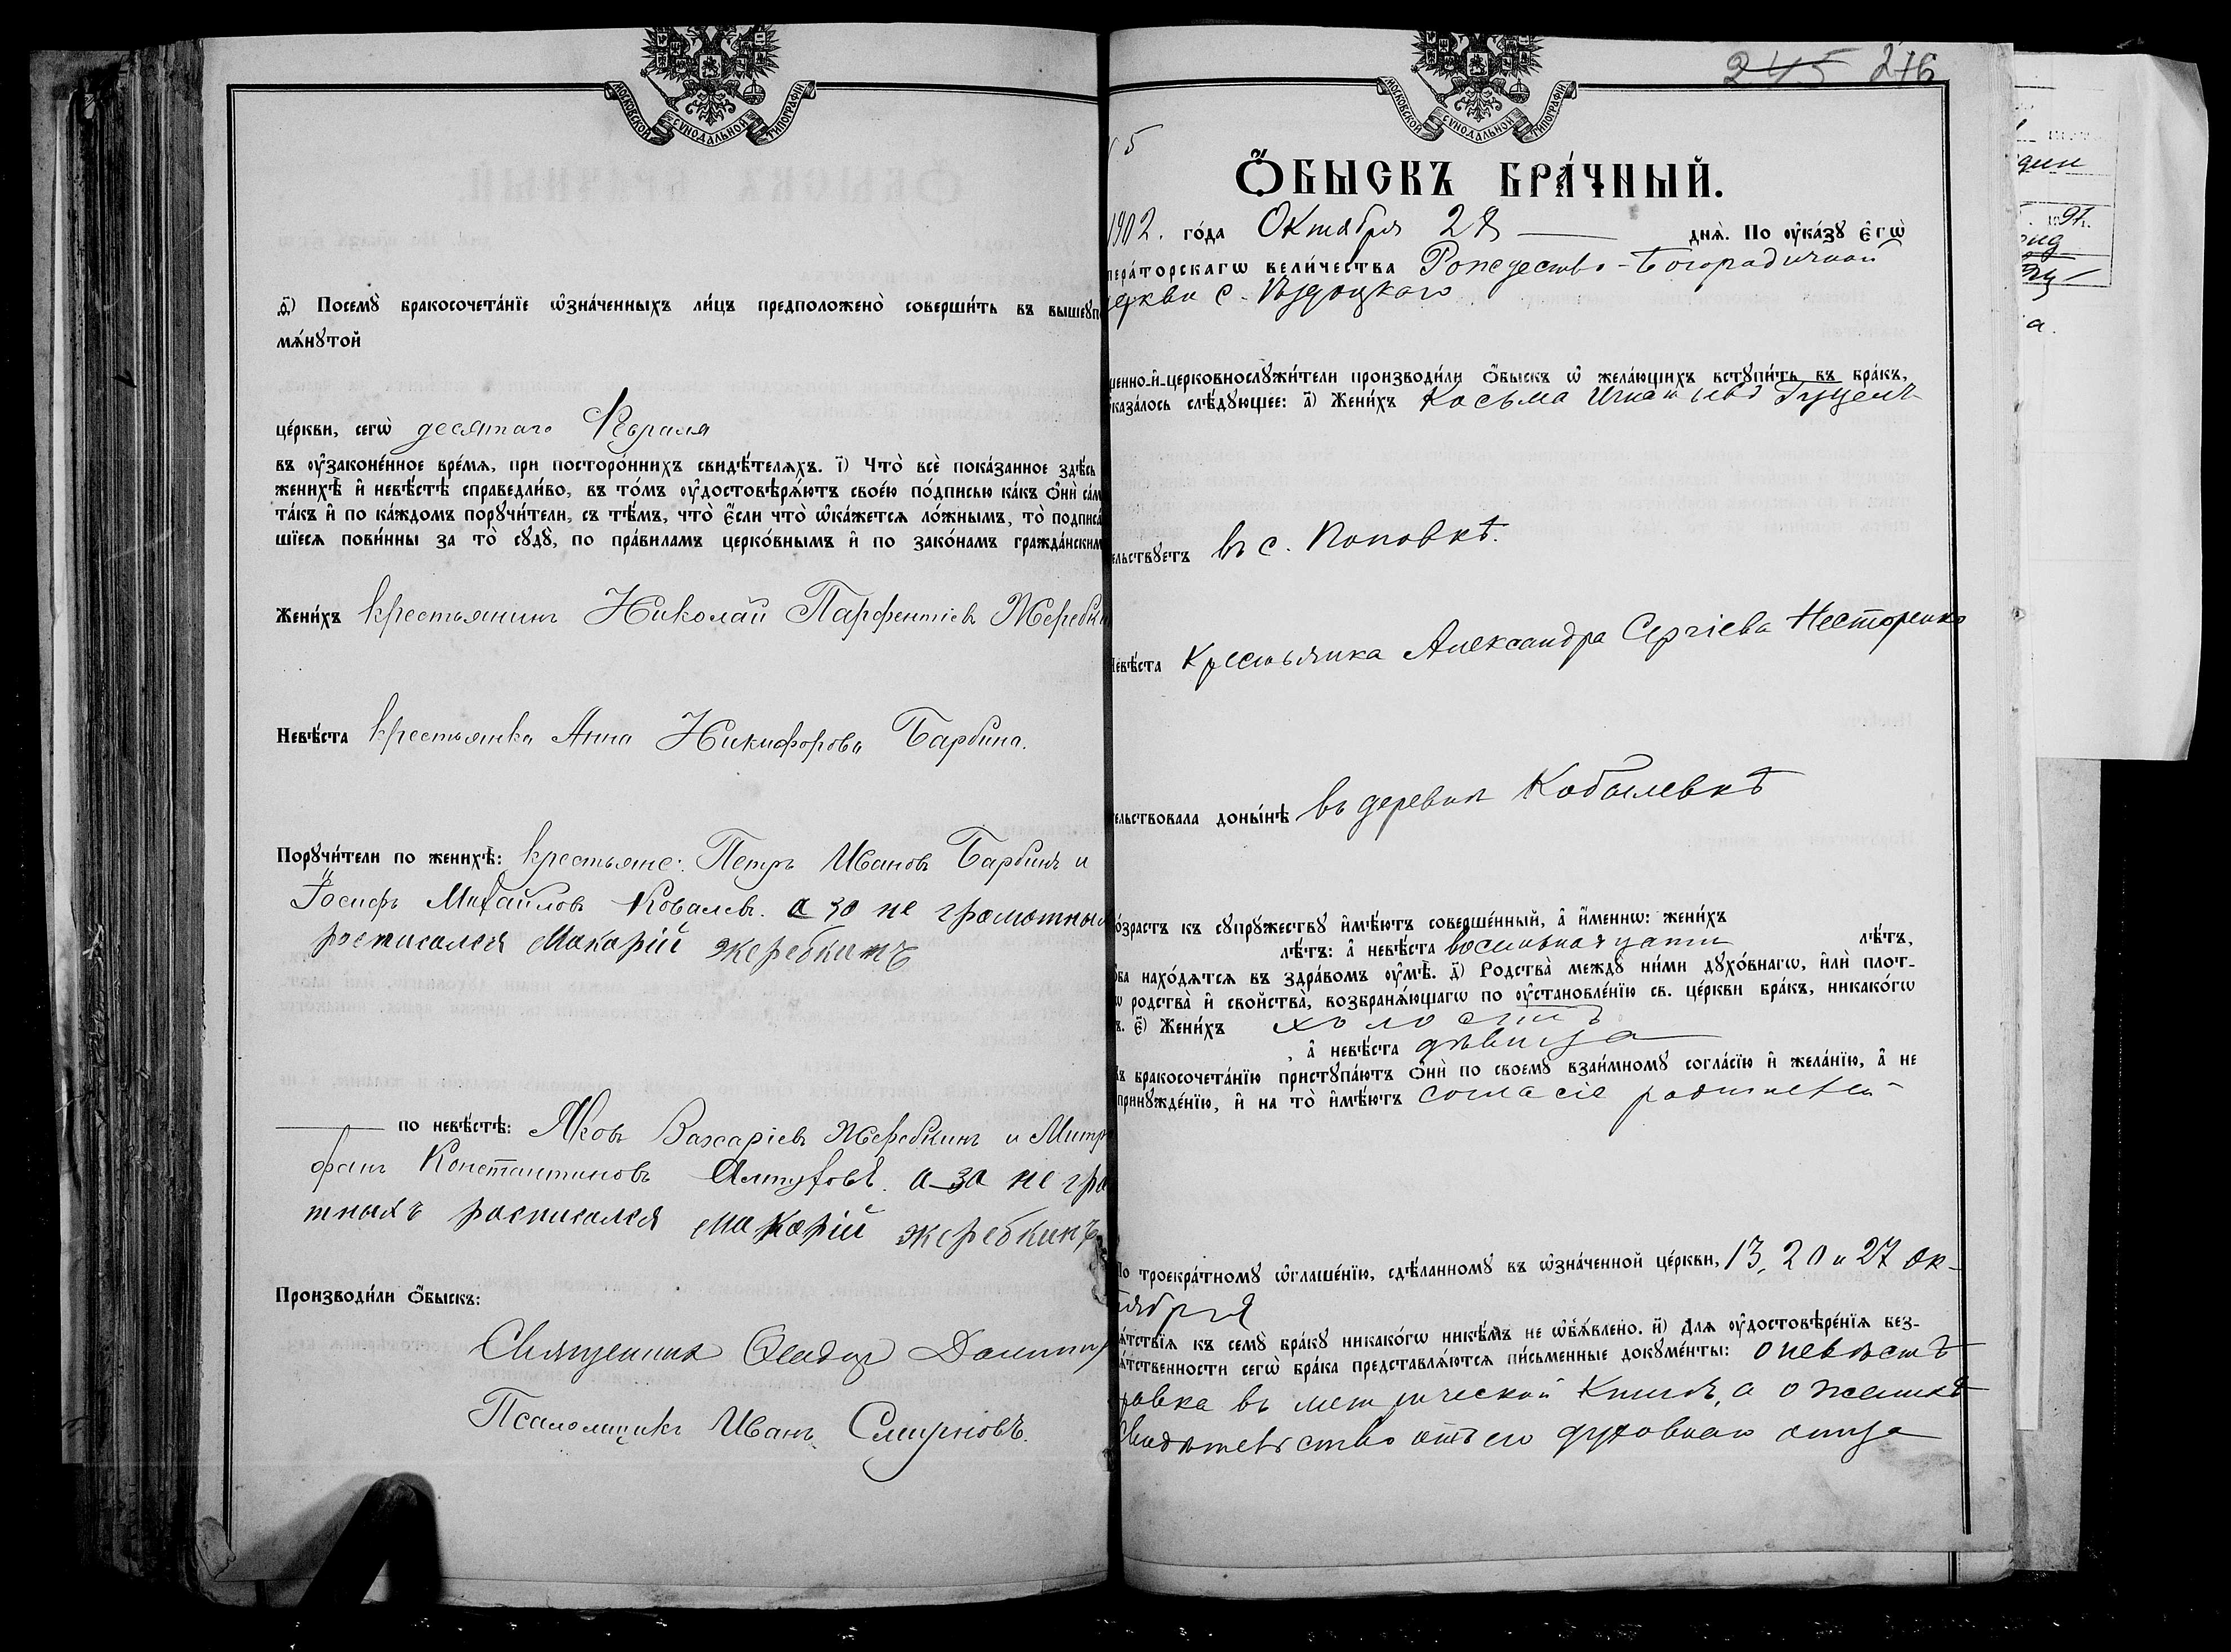 МОСКОВСКОЙ СУНОДАЛЬНОЙ ТИПОГРАФІИ
д҃) Посемꙋ̀ бракосочета́нїе ѡ҆зна́ченныхъ ли́цъ предположено̀ соверши́ть въ вышеꙋп
мѧ́нꙋтой
це́ркви, сегѡ̀ десятаго Февраля
въ ᲂу҆законе́нное вре́мѧ, при посторо́ннихъ свидѣ́телѧхъ. і҃) Что̀ всѐ пока́занное здѣ́сь
женихѣ̀ и҆ невѣ́стѣ справедли́во, въ то́мъ ᲂу҆достовѣрѧ́ютъ свое́ю по́дписью ка́къ ѻ҆нѝ са́м
та́къ и҆ по ка́ждомъ порꙋчи́тели, съ тѣ́мъ, что̀ є҆́сли что̀ ѡ҆ка́жется ло́жнымъ, то̀ подписа́
шїеся пови́нны за то̀ сꙋдꙋ̀, по пра́виламъ церко́внымъ и҆ по зако́намъ гражда́нским
Жени́хъ крестьянинъ Николай Парфентіевъ Жеребки
Невѣ́ста крестьянка Анна Никифорова Барбина.
Порꙋчи́тели по женихѣ̀: крестьяне: Петръ Ивановъ Барбинъ и
Іосифъ Михайловъ Ковалевъ. а за не громотных
росписался Макарій жеребкинъ
по невѣ́стѣ: Яковъ Захаріевъ Жеребкинъ и Митро
фанъ Константиновъ Алтуховъ. а за не гра
тныхъ росписался Макарій жеребкинъ
Производи́ли ѻ҆́быскъ:
Священникъ
Псаломщикъ Иванъ Смирновъ.
245 246
5
МОСКОВСКОЙ СУНОДАЛЬНОЙ ТИПОГРАФІИ
Ѻ҆́БЫСКЪ БРА́ЧНЫЙ.
1902. го́да Октября 28 днѧ̀. По ᲂу҆ка́зꙋ є҆гѡ̀
пера́торскагѡ вели́чества Рождество-Богородичной
церкви с.
щенно-и҆-церковнослꙋжи́тели производи́ли ѻ҆́быскъ ѡ҆ жела́ющихъ встꙋпи́ть въ бра́къ,
ѡ҆каза́лось слѣ́дꙋющее: а҃) Жени́хъ Косьма Игнатьевъ Гуцелъ
ельствꙋетъ въ с. Поповкѣ.
Невѣ́ста Крестьянка Александра Сергіева Несторенко
ельствовала доны́нѣ въ деревнѣ Кобылевкѣ
о́зрастъ къ сꙋпрꙋ́жествꙋ и҆мѣ́ютъ соверше́нный, а҆ и҆́меннѡ: жени́хъ
лѣ́тъ: а҆ невѣ́ста восемьнадцати лѣ́тъ,
ба нахо́дятся въ здра́вомъ ᲂу҆мѣ̀. д҃) Родства̀ междꙋ ни́ми дꙋхо́внагѡ, и҆лѝ плот-
ѡ родства̀ и҆ свойства̀, возбранѧ́ющагѡ по ᲂу҆становле́нїю св. це́ркви бра́къ, никако́гѡ
ъ. є҃) Жени́хъ холостъ
, а҆ невѣ́ста дѣвица
ъ бракосочета́нїю пристꙋпа́ютъ ѻ҆нѝ по своемꙋ̀ взаи́мномꙋ согла́сїю и҆ жела́нїю, а҆ не
принꙋжде́нїю, и҆ на то̀ и҆мѣ́ютъ согласіе родителей
По троекра́тномꙋ ѡ҆глаше́нїю, сдѣ́ланномꙋ въ ѡ҆зна́ченной це́ркви, 13, 20 и 27 ок-
тября
ѧ́тствїя къ семꙋ̀ бра́кꙋ никако́гѡ никѣ́мъ не ѡ҆б̾ѧ́влено. и҃) Для ᲂу҆достовѣре́нїя без-
ѧ́тственности сегѡ̀ бра́ка представлѧ́ются пи́сьменные докꙋме́нты: о невѣстѣ
равка въ метрической книгѣ, а о женихѣ
Свидѣтельство отъ его духовнаго отца